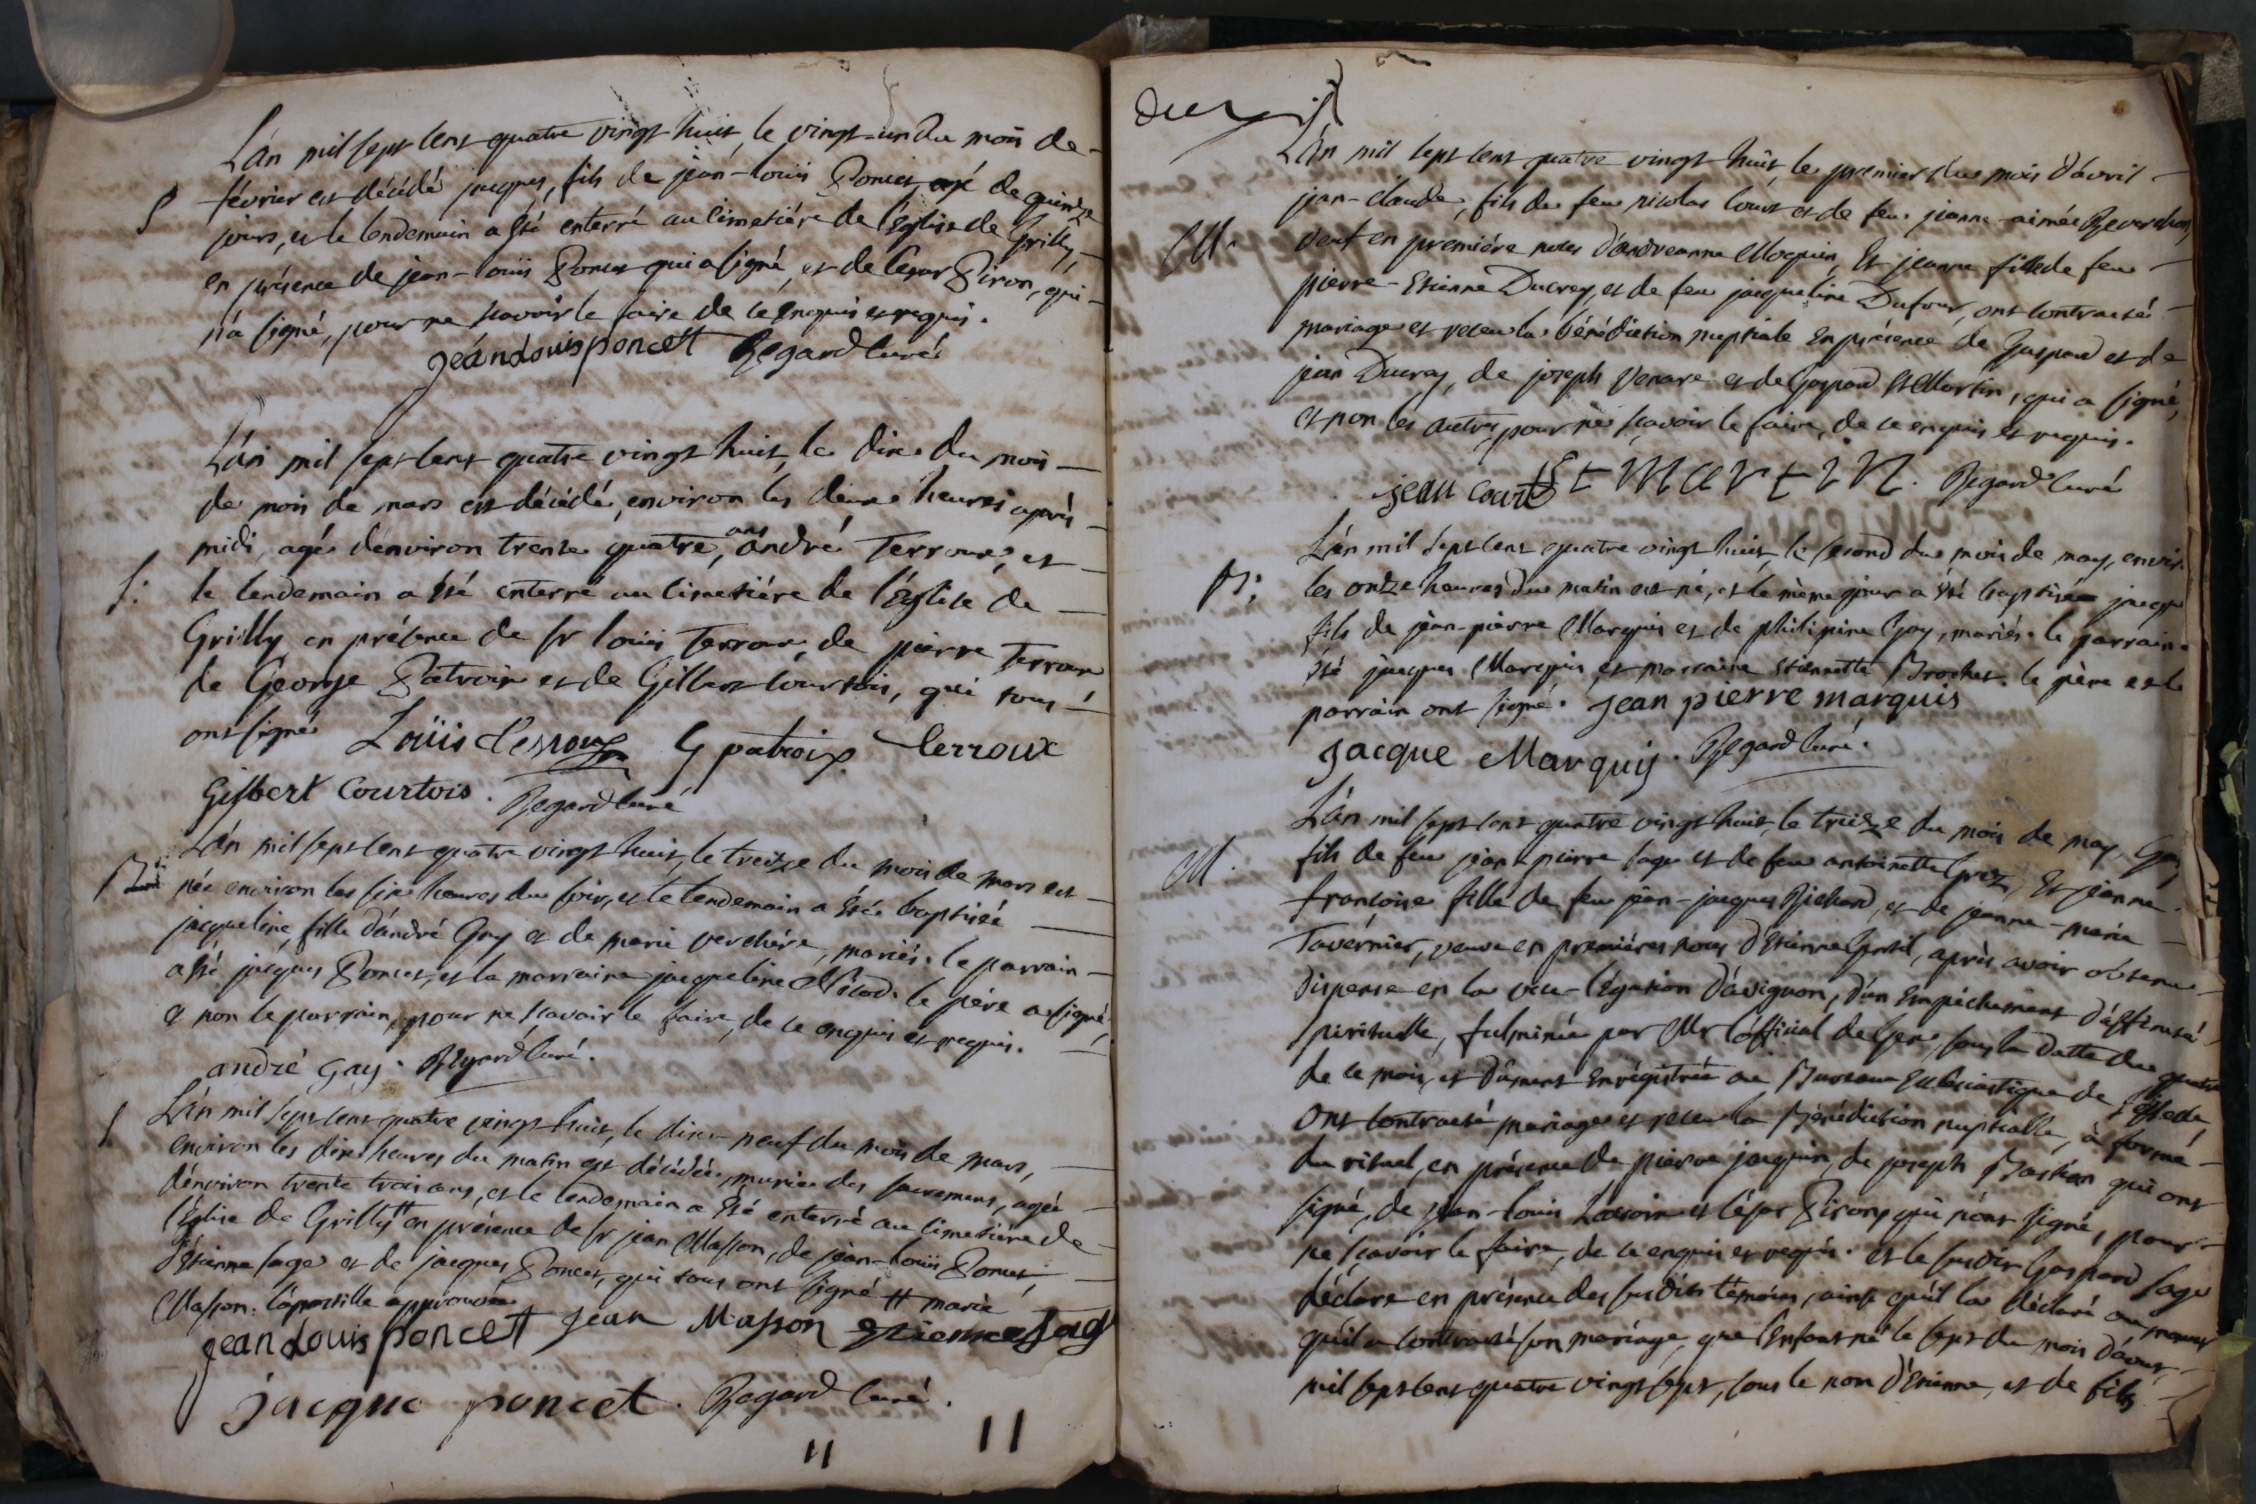 L'án mil sept cent quatre vingt huit, le vingt-un du mois de
S février est décédé jacques, fils de jean-loüis Poncet agé de quinze
jours, et le lendemain a été enterré au cimetiére de l'église de Grilly,
en présence de jean-loüis Poncet qui a signé, et de Cesar Piron, qui
n'a signé, pour ne scavoir le faire de ce enquis et requis.
Jeán Louis poncett Regard Curé
L'án mil sept cent quatre vingt huit, le dix du mois
de mois de mars est décédé, environ les deux heures après
ans
midi, agé d'environ trente quatre, André Terroux, et
S: le lendemain a été enterré au cimetiére de l'Eglise de
Grilly en présence de sr loüis Terroux, de pierre Terroux
de George Patroix et de Gilbert Courtois, qui tous
ont signé Loüis Terroux G patroix terroux
Gilbert Courtois. Regard Curé
L'án mil sept cent quatre vingt huit, le treize du mois de mars est
B: née environ les six heures du soir, et le lendemain a été baptisée
jacqueline, fille d'andré Gay et de marie verchére, mariés. le parrain
a été jacques Poncet, et la marraine jacqueline Nicod. le père a signé,
& non le parrain, pour ne scavoir le faire, de ce enquis et requis.
andré gay. Regard Curé.
S L'án mil sept cent quatre vingt huit, le dix-neuf du mois de mars,
environ les dix heures du matin est décédée, munie des sacremens, agée
d'environ trente trois ans, et le lendemain a été enterré au cimetiére de
l'Eglise de Grilly # en présence de sr jean Masson, de jean-loüis Poncet,
d'étienne sage et de jacques Poncet, qui tous ont signé # marie
Masson. l'apostille approuvée
Jean Louis poncett jean Masson etienne sage
jacque poncet. Regard Curé.
11 11
L'án mil sept cent quatre vingt huit, le premier du mois d'avril
jean-claude, fils de feu nicolas Court et de feu jeanne-aimée Reverchon,
M. veuf en premiére noces d'andreanne Moquin, Et jeanne fille de feu
pierre-Etienne Ducrey, et de feu jacqueline Dufour, ont contracté
mariage et receu la bénédiction nuptiale en présence de Gaspard et de
jean Ducray, de joseph Venare et de Gaspard St Martin, qui a signé,
et non les autres, pour ne scavoir le faire, de ce enquis et requis.
jean court St Martin. Regard Curé
L'án mil sept cent quatre vingt huit, le second du mois de may, envir.
B: les onze heures du matin est né, et le même jour a été baptisé jacque
fils de jean-pierre Marquis et de philipine Gay, mariés. le parrain a
été jacques Marquis et marraine étiennette Brochet. le père et le
parrain ont signé. Jean pierre marquis
jacque Marquis. Regard Curé.
L'án mil sept cent quatre vingt huit, le treize du mois de may, Gas
M. fils de feu jean pierre sage et de feu antoinette Grez, Et jeanne
francoise fille de feu jean-jacques Richard, et de jeanne-marie
Tavérnier, veuve en premiéres noces d'Etienne, après avoir obtenu
dispense en la vice-légation d'avignon, d'un Empêchement d'affinité
spirituelle, fulminée par Mr l'official de Gex, sous la datte du quatre
de ce mois, et dûment enrégistrée au Bureau Ecclésiastique de
ont contracté mariage et receu la Bénédiction nuptialle, à forme
du rituel, en présence de pierre jacquin, de joseph Bastian qui ont
signé, de jean-louis et César Piron qui n'ont signé, pour
ne scavoir le faire, de ce enquis et requis. et le susdit Gaspard sage
déclare en présence des susdits témoins, ainsi qu'il l'a déclaré au moment
qu'il a contracté son mariage, que l'Enfant né le sept du mois d'aout,
mil sept cent quatre vingt sept, sous le nom d'Etienne, et de fils